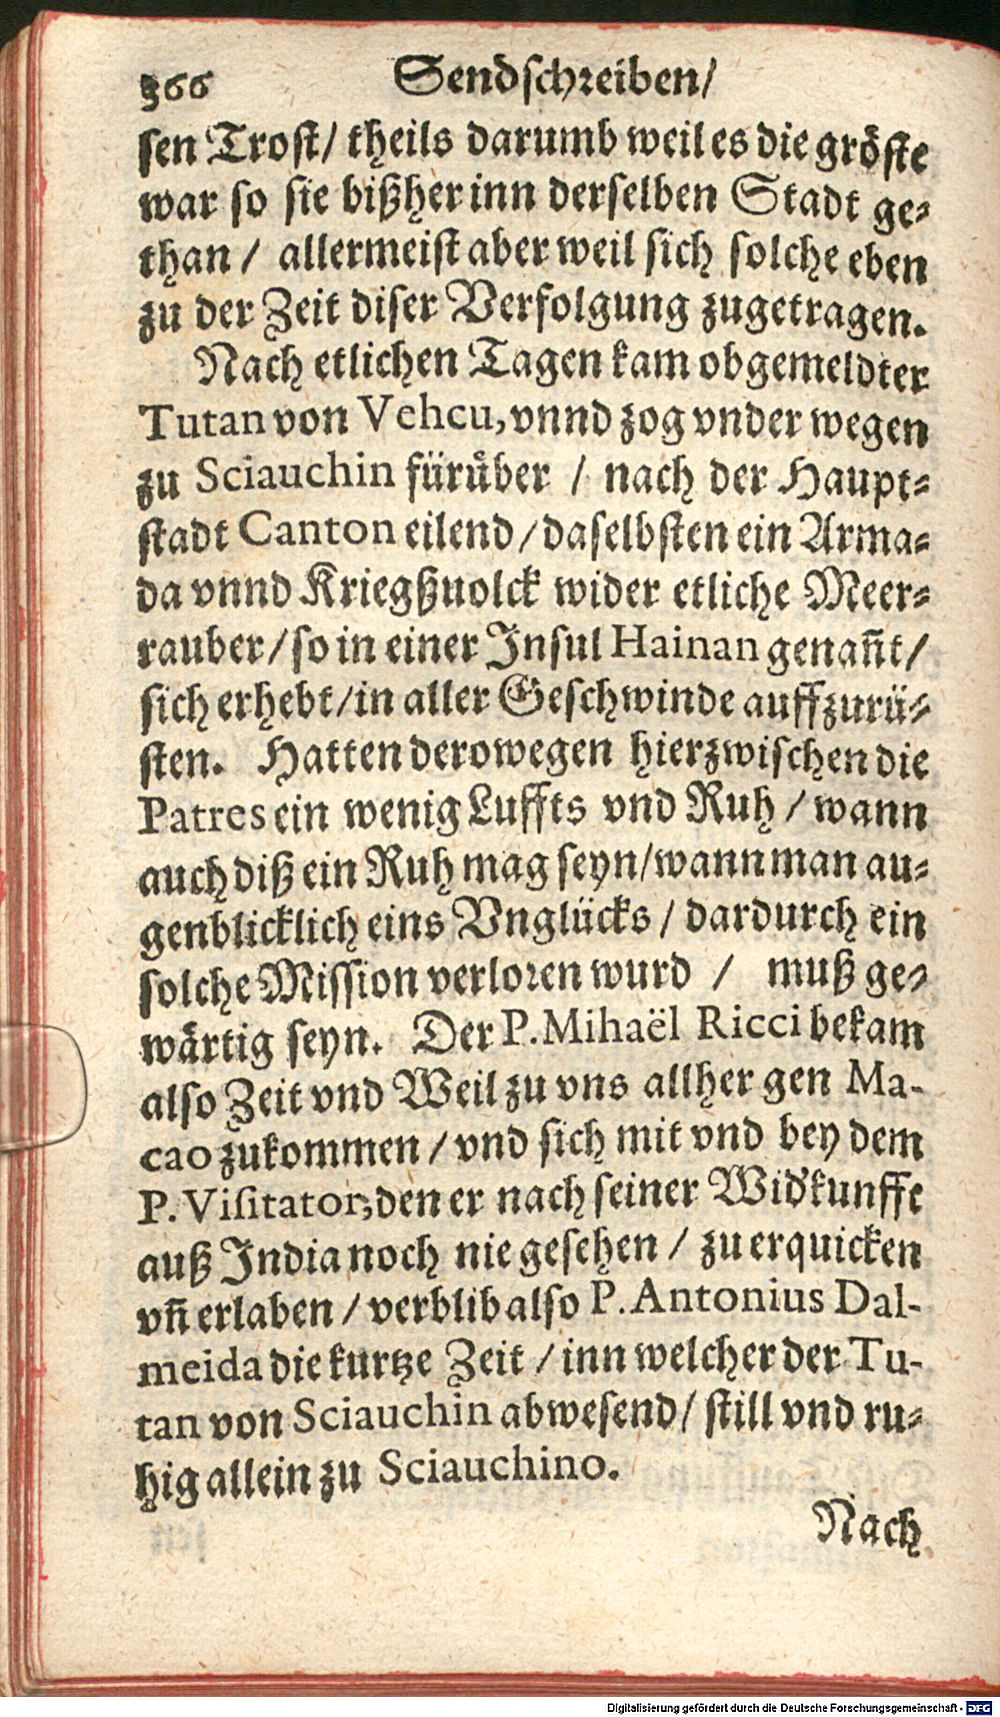 366 Sendschreiben/
sen Trost/ theils darumb weil es die gröste
war so sie bißher inn derselben Stadt ge-
than / allermeist aber weil sich solche eben
zu der Zeit diser Verfolgung zugetragen.
Nach etlichen Tagen kam obgemeldter
Tutan von Vehcu, vnnd zog vnder wegen
zu Sciauchin fürüber / nach der Haupt-
stadt Canton eilend / daselbsten ein Arma-
da vnnd Kriegßuolck wider etliche Meer-
rauber / so in einer Insul Hainan genañt /
sich erhebt / in aller Geschwinde auffzurü-
sten. Hatten derowegen hierzwischen die
Patres ein wenig Luffts vnd Ruh / wann
auch diß ein Ruh mag seyn / wann man au-
genblicklich eins Vnglücks / dardurch ein
solche Mission verloren wurd / muß ge-
wärtig seyn. Der P. Mihaël Ricci bekam
also Zeit vnd Weil zu vns allher gen Ma-
cao zukommen / vnd sich mit vnd bey dem
P. Visitator, den er nach seiner Wid'kunfft
auß India noch nie gesehen / zu erquicken
vñ erlaben / verblib also P. Antonius Dal-
meida die kurtze Zeit / inn welcher der Tu-
tan von Sciauchin abwesend / still vnd ru-
hig allein zu Sciauchino.
Nach
Digitalisierung gefördert durch die Deutsche Forschungsgemeinschaft - DFG